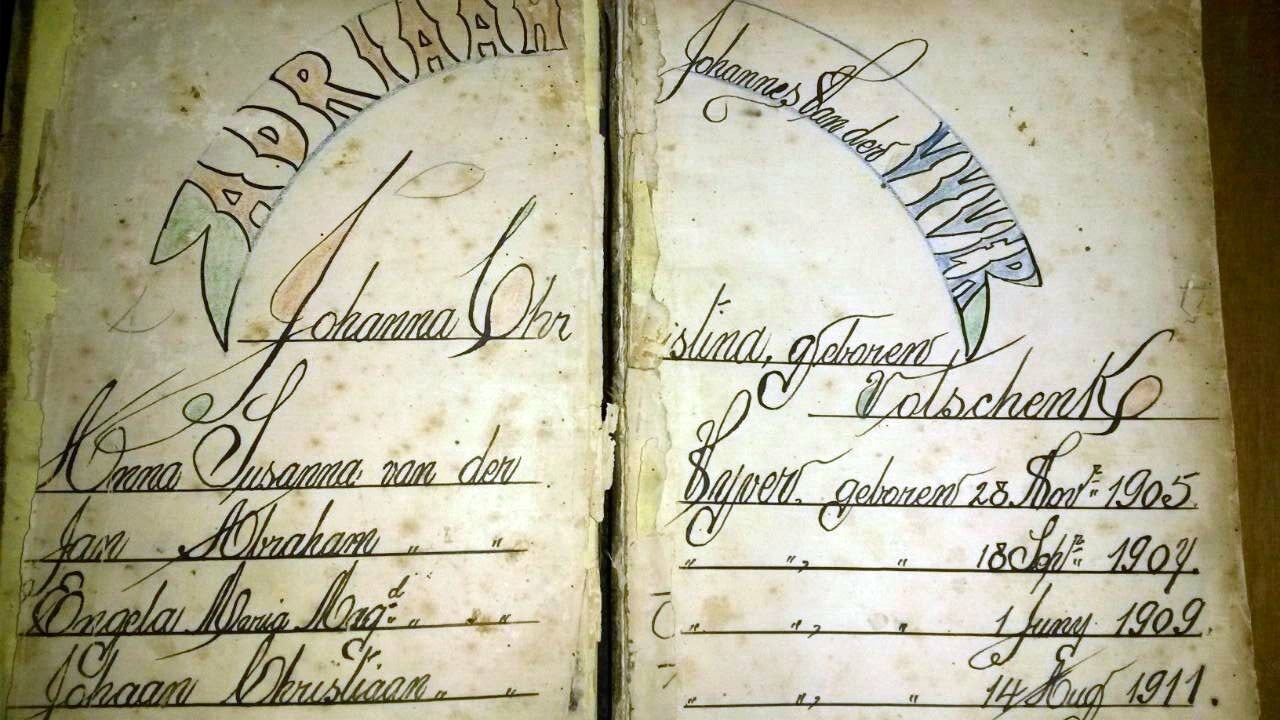 ADRIAAN Johannes Van der VYVER
Johanna Christina, geboren
Potschenk
Anna Susanna van der Vyver geboren 28 Novr 1905.
Jan Abraham „ „ „ „, „ 18 Sepr 1907.
Engela Maria Magd „ „ „ „, „ 1 Juny 1909.
Johaan Christiaan „ „ „ „, „ 14 Aug 1911.